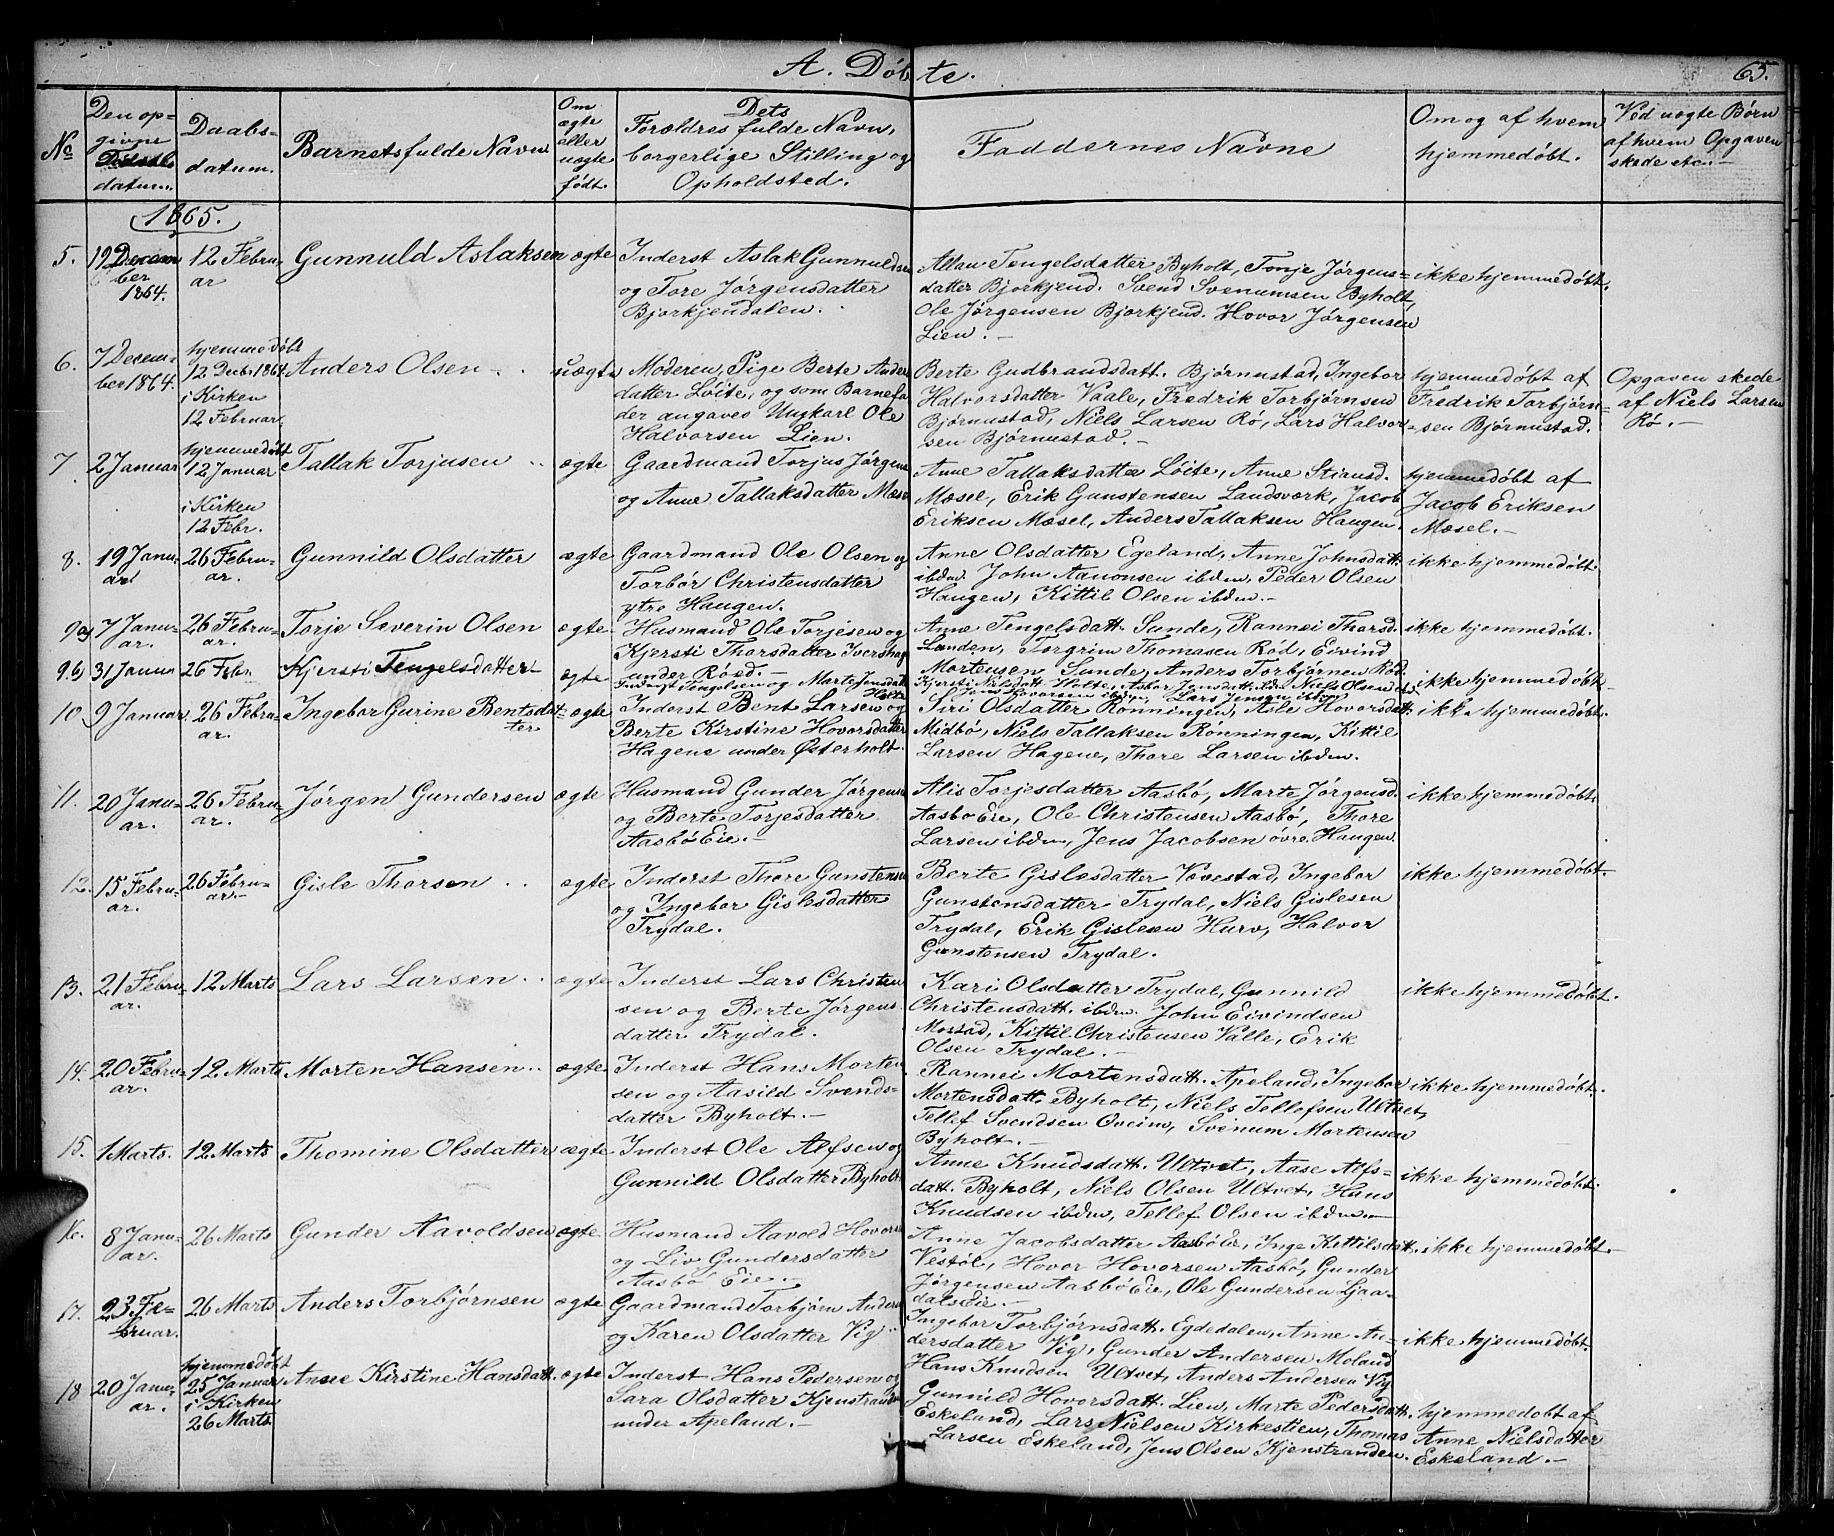 A. Döbte.
65.
No
Den opgivne datum.
Daabsdatum.
Barnets fulde Navn
Om ægte eller uægte født.
Dets Forældres fulde Navn, borgerlige Stilling og Opholdsted.
Faddernes Navne
Om og af hvem hjemmedøbt.
Ved uægte Børn af hvem Opgaven skede etc.
1865.
5. 19 December 1864. 12 Februar Gunnuld Aslaksen ægte
Inderst Aslak Gunnuldsen
og Tore Jørgensdatter
Bjorkjendalen.
Tengelsdatter Byholt, Tonje Jørgens-
datter Bjorkjend. Svend Svenumsen Byholt,
Ole Jørgensen Bjorkjend. Hovor Jørgensen
Lien.
ikke hjemmedøbt.
6. 7 December 1864. hjemmedøbt 12 Decbr 1864 i Kirken 12 Februar Anders Olsen uægte
Moderen, Pige Berte Anders
datter Løite, og som Barnefa
der angaves Ungkarl Ole
Halvorsen Lien.
Berte Gudbrandsdatt. Bjørnustad, Ingebor
Halvorsdatter Vaale, Fredrik Torbjørnsen
Bjørnustad, Niels Larsen Rö, Lars Halvor
sen Bjørnustad.
hjemmedøbt af
Fredrik Torbjørn-
sen Bjørnustad.
Opgaven skede
af Niels Larsen
Rö.
7. 2 Januar hjemmedøbt 12 Januar i Kirken 12 Febr. Tallak Torjusen ægte
Gaardmand Torjus Jørgens
og Anne Tallaksdatter Mæsel
Anne Tallaksdatter Løite, Anne Stiansd.
Mæsel, Erik Gunstensen Landsverk, Jacob
Eriksen Mæsel, Anders Tallaksen Haugen.
hjemmedøbt af
Jacob Eriksen
Mæsel.
8. 19 Januar 26 Februar. Gunnild Olsdatter ægte
Gaardmand Ole Olsen og
Torbör Christensdatter
ytre Haugen.
Anne Olsdatter Egeland, Anne Johnsdatt.
ibdm. John Aanonsen ibdm, Peder Olsen
Haugen, Kittil Olsen ibdm.
ikke hjemmedøbt.
9a) 7 Januar. 26 Februar. Torje Severin Olsen ægte
Husmand Ole Torjesen og
Kjersti Thorsdatter
under Röed.
Anne Tengelsdatt. Sunde, Rannei Thorsd.
Landen, Torgrim Thomasen Röd, Eivind
Mortensen Sunde, Anders Torbjørnen Röd.
ikke hjemmedøbt.
9b) 31 Januar 26 Febr. Kjersti Tengelsdatter ægte
Tengelsen og Marte Jensdatt.
ikke hjemmedøbt.
10. 9 Januar 26 Februar. Ingebor Gurine Bentsdatter ægte
Inderst Bent Larsen og
Berte Kirstine Hovorsdatter
Hagene under Østerholt.
Siri Olsdatter Rønningen, Asle Hovorsdatt.
Midbö, Niels Tallaksen Rønningen, Kittil
Larsen Hagene, Thore Larsen ibdm.
ikke hjemmedøbt.
11. 20 Januar. 26 Februar. Jørgen Gundersen ægte
Husmand Gunder Jørgens
og Berte Torjesdatter
Aasbö Eie.
Alis Torjesdatter Aasbö, Marte Jørgensd.
Aasbö Eie, Ole Christensen Aasbö, Thore
Larsen ibdm, Jens Jacobsen övre Haugen.
ikke hjemmedøbt.
12. 15 Februar. 26 Februar. Gisle Thorsen ægte
Inderst Thore Gunstensen
og Ingebor Gislesdatter
Trydal.
Berte Gislesdatter Vevestad, Ingebor
Gunstensdatter Trydal, Niels Gislesen
Trydal, Erik Gislesen Hurv, Halvor
Gunstensen Trydal.
ikke hjemmedøbt.
13. 21 Februar. 12 Marts Lars Larsen ægte
Inderst Lars Christen
sen og Berte Jørgens
datter Trydal.
Kari Olsdatter Trydal, Gunnild
Christensdatt. ibdm. John Eivindsen
Mostad, Kittil Christensen Valle, Erik
Olsen Trydal.
ikke hjemmedøbt.
14. 20 Februar. 12 Marts Morten Hansen ægte
Inderst Hans Morten
sen og Aasild Svends-
datter Byholt.
Rannei Mortensdatt. Apeland, Ingebor
Mortensdatt. Byholt, Niels Tellefsen Ultvet,
Tellef Svendsen Oveim, Svenum Mortensen
Byholt.
ikke hjemmedøbt.
15. 1 Marts. 12 Marts Thomine Olsdatter ægte
Inderst Ole Alfsen og
Gunnild Olsdatter Byholt
Anne Knudsdatt. Ultvet, Aase Alfs-
datt. Byholt, Niels Olsen Ultvet, Hans
Knudsen ibdm, Tellef Olsen ibdm.
ikke hjemmedøbt.
16. 8 Januar. 26 Marts Gunder Aavoldsen ægte
Husmand Aavold Hovors
og Liv Gundersdatter
Aasbö Eie.
Anne Jacobsdatter Aasbö Eie, Inge Kittilsdatt.
Vestöl, Hovor Hovorsen Aasbö, Gunder
Jørgensen Aasbö Eie, Ole Gundersen Ljaa-
dals Eie.
ikke hjemmedøbt.
17. 23 Februar. 26 Marts Anders Torbjørnsen ægte
Gaardmand Torbjørn Anders
og Karen Olsdatter Vig
Ingebor Torbjørnsdatt. Egdedalen, Anne An-
dersdatter Vig, Gunder Andersen Moland
Hans Knudsen Ultvet, Anders Andersen Vig
ikke hjemmedøbt.
18 20 Januar. hjemmedøbt 25 Januar i Kirken 26 Marts Anne Kirstine Hansdatt. ægte
Inderst Hans Pedersen og
Sara Olsdatter Kjenstranden
under Apeland.
Gunnild Hovorsdatt. Lien, Marte Pedersdatt.
Eskeland, Lars Nielsen Kirkestien, Thomas
Larsen Eskeland, Jens Olsen Kjenstranden.
hjemmedøbt af
Anne Nielsdatter
Eskeland.